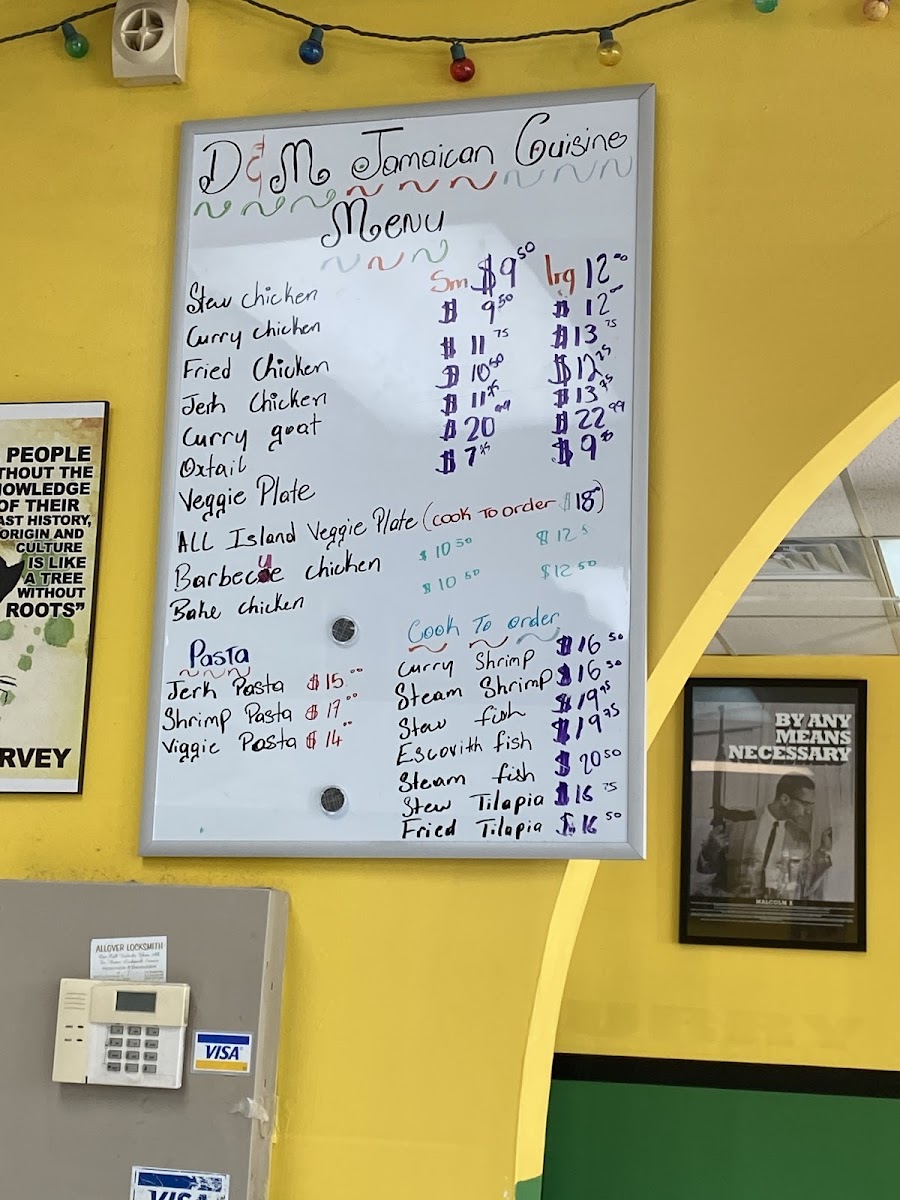 D & M Jamaican Cuisine
Menu
Stew chicken Sm $9.50 lrg 12.00
Curry chicken $ 9.50 $ 12.00
Fried Chicken $ 11.75 $13.75
Jerk Chicken $ 10.50 $12.75
Curry goat $ 11.75 $ 13.75
Oxtail $ 20 $ 22.99
Veggie Plate $ 7 $ 9.50
ALL Island Veggie Plate (cook To order $ 18)
Barbecue chicken $ 10 50 $ 12.5
Bake chicken $ 10 50 $12 50
Pasta
Jerk Pasta $ 15.00
Shrimp Pasta $ 17.00
Viggie Pasta $ 14.00
Cook To order
curry Shrimp $16.50
Steam Shrimp $16.50
Stew fish $19.75
Escovith fish $19.75
Steam fish $ 20.50
Stew Tilapia $16.75
Fried Tilapia $.16.50
PEOPLE
THOUT THE
NOWLEDGE
OF THEIR
AST HISTORY,
ORIGIN AND
CULTURE
IS LIKE
A TREE
WITHOUT
ROOTS”
RVEY
BY ANY
MEANS
NECESSARY
MALCOLM X
ALLOVER LOCKSMITH
VISA
VISA